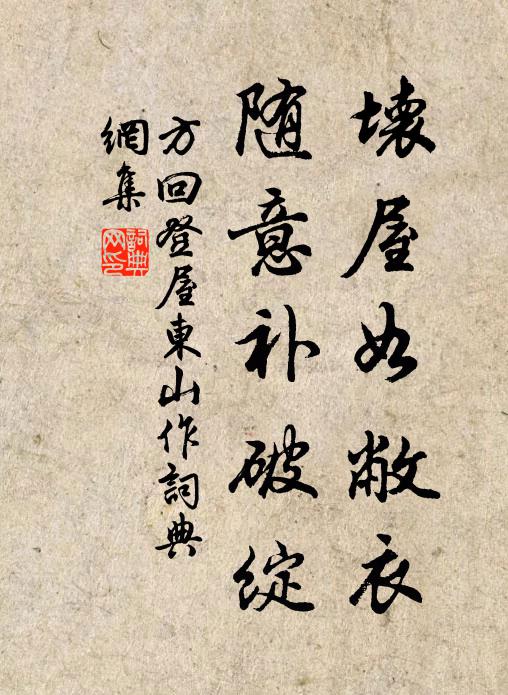 壊屋如敝衣
随意补破綻
方回登屋東山作詞典
網集
詞典
网印